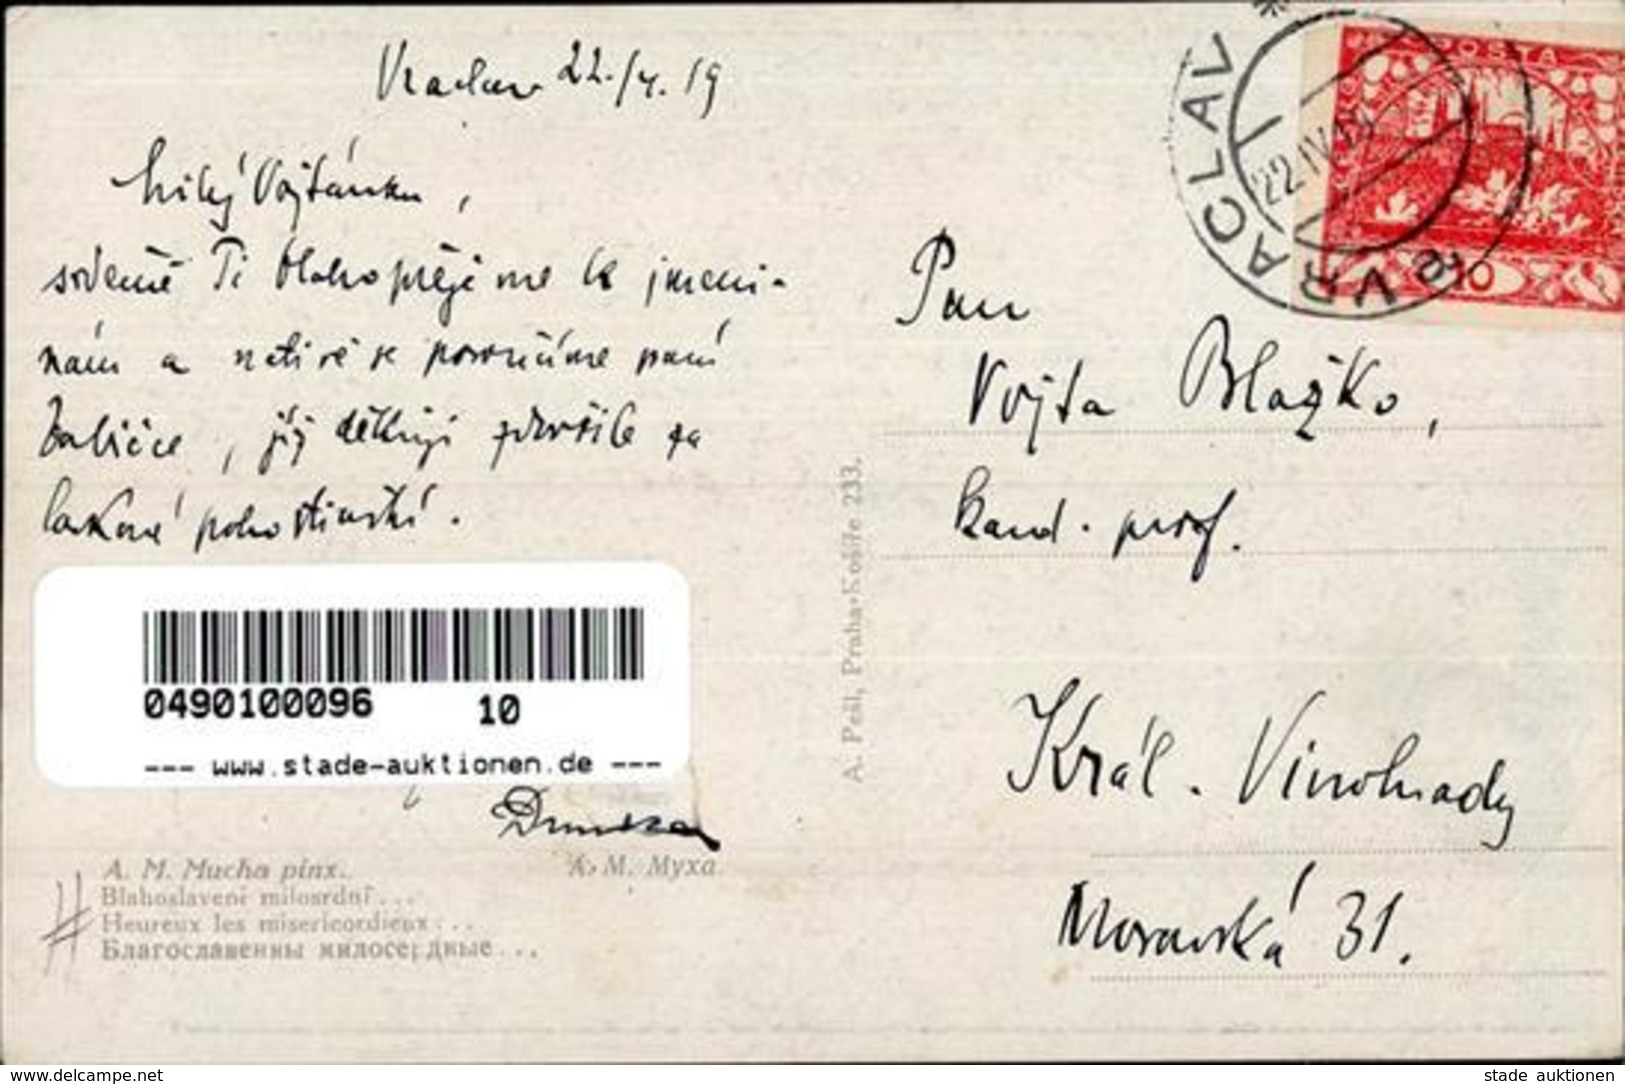 Vraclav 22./4. 19
Milý Vojtánku,
srdečně Ti blahopřejeme k jmeni-
nám a uctivě se poroučíme paní
babičce, jíž děkuji zdvořile za
laskavé pohostinství.
0490100096 10
--- www.stade-auktionen.de ---
A. M. Mucha pinx. А. М. Муха.
Blahoslavení milosrdní...
Heureux les misericordieux...
Благославенны милосердные...
A. Pešl, Praha-Košíře 233.
VRACLAV
22.IV.19
POŠTA
10
Pan
Vojta Blažko,
kand. prof.
Král. Vinohrady
Moravská 31.
www.delcampe.net
stade auktionen